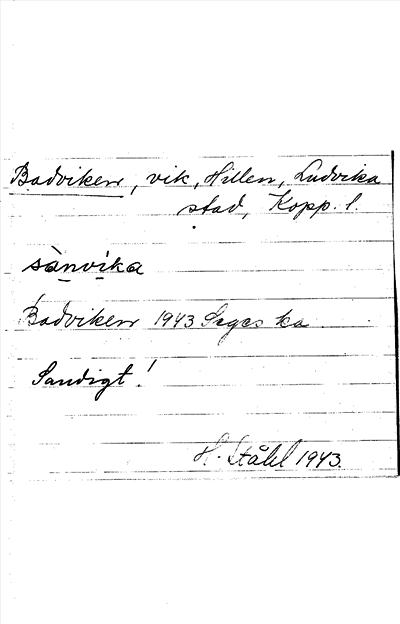 Badviken, vik, Hillen, Ludvika
stad, Kopp. l.
sànvíka
Badviken 1943 Seges ka
Sandigt!
H. Ståhl 1943.